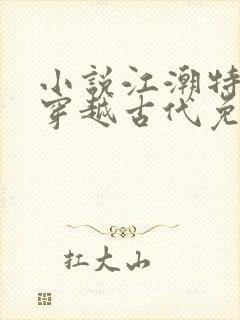 小说江潮特
穿越古代免
扛大山